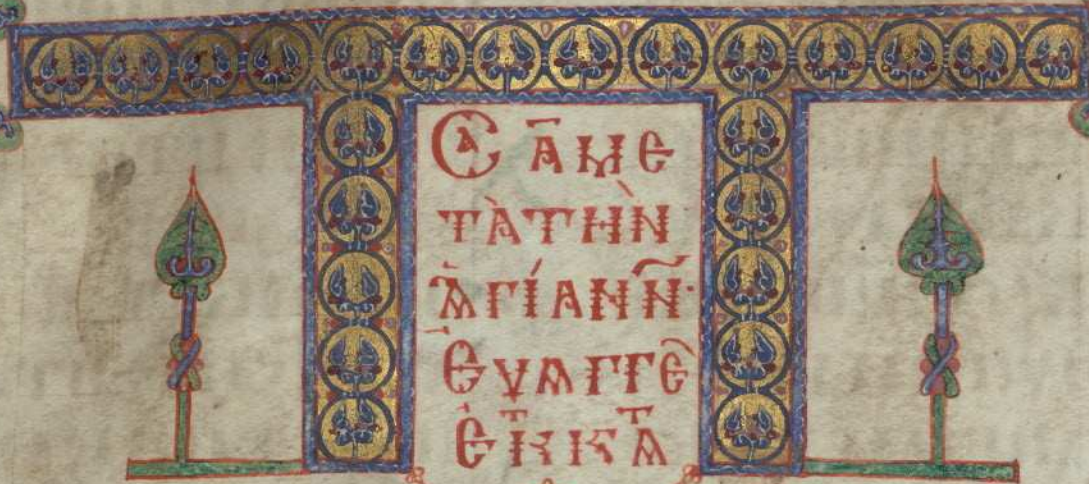 CᾹ Ᾱ ΜΕ
ΤᾺ ΤῊΝ
ἉΓΊΑΝ Ν̄·
ἘΥΑΓΓΕ̑
ἘΚᵀ ΚΑᵀ